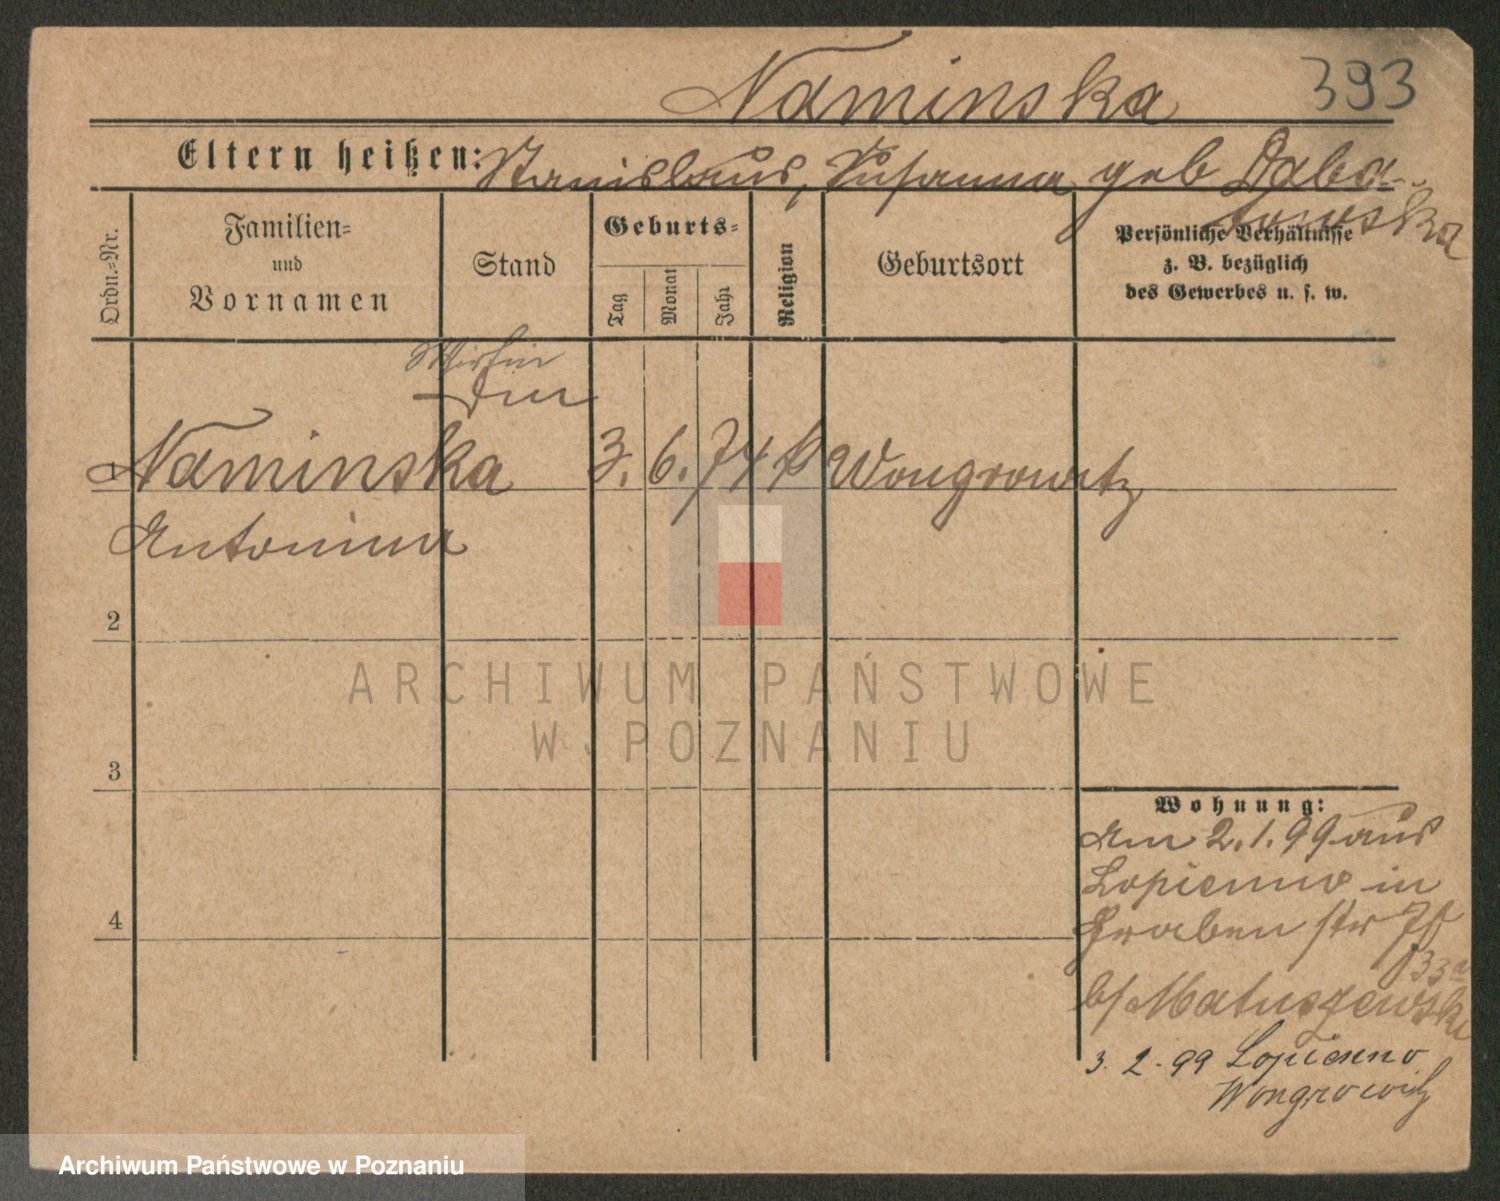 Naminska 393
Eltern heißen: Stanislaus, Susanna geb Daba-
rowska
Ordn.-Nr.
Familien-
und
Vornamen
Stand
Geburts-
Tag
Monat
Jahr
Religion
Geburtsort
Persönliche Verhältnisse
z. B. bezüglich
des Gewerbes u. s. w.
Wirthin
1 Naminska 3. 6. 74 k Wongrowitz
Antonina
2
3
4
Wohnung:
Am 2.1.99 aus
Lopienno in
Graben str
33a
b/ Matuszewski
3. 2. 99 Lopienno
Wongrowitz
ARCHIWUM PAŃSTWOWE
W POZNANIU
Archiwum Państwowe w Poznaniu